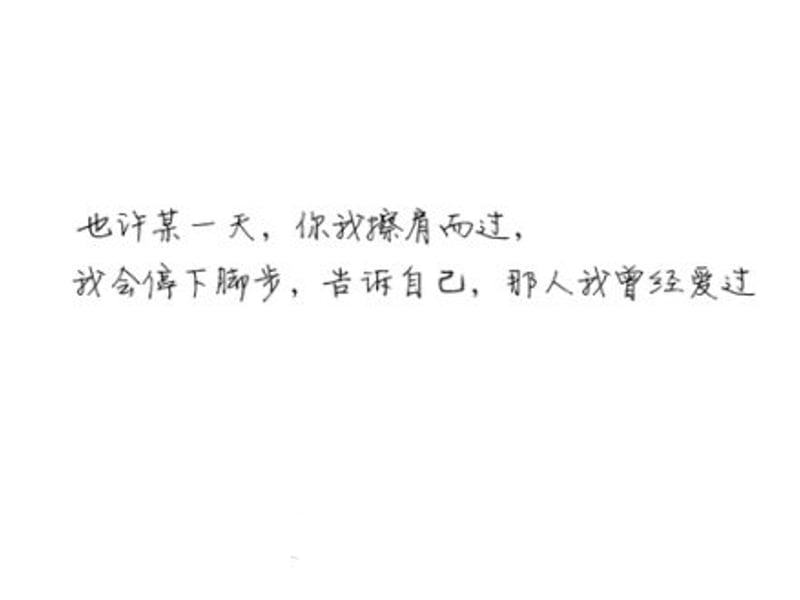 也许某一天，你我擦肩而过，
我会停下脚步，告诉自己，那人我曾经爱过